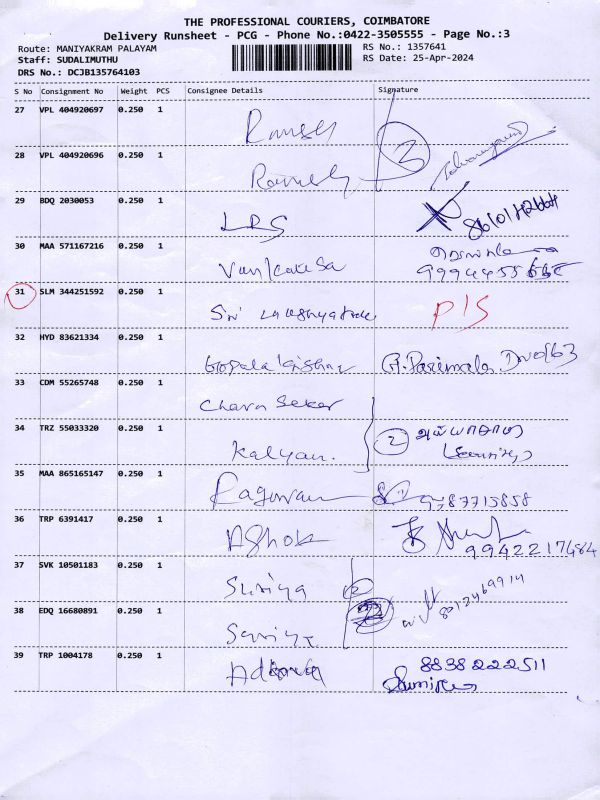 THE PROFESSIONAL COURIERS, COIMBATORE
Delivery Runsheet - PCG - Phone No.:0422-3505555 - Page No.:3
Route: MANIYAKRAM PALAYAM
RS No.: 1357641
Staff: SUDALIMUTHU
RS Date: 25-Apr-2024
DRS No.: DCJB135764103
S No Consignment No Weight PCS Consignee Details Signature
27 VPL 404920697 0.250 1
Ramesh
28 VPL 404920696 0.250 1 3
Ramesh
29 BDQ 2030053 0.250 1
LPS
30 MAA 571167216 0.250 1
Venkatesa
31 SLM 344251592 0.250 1
Sri P/S
32 HYD 83621334 0.250 1
Gopala Krishna G. Parimala
33 CDM 55265748 0.250 1
Charn Seker
34 TRZ 55033320 0.250 1 2
Kalyan.
35 MAA 865165147 0.250 1
9787715858
36 TRP 6391417 0.250 1
Ashok 9942217484
37 SVK 10501183 0.250 1
Suriya
38 EDQ 16680891 0.250 1
39 TRP 1004178 0.250 1
8838222511